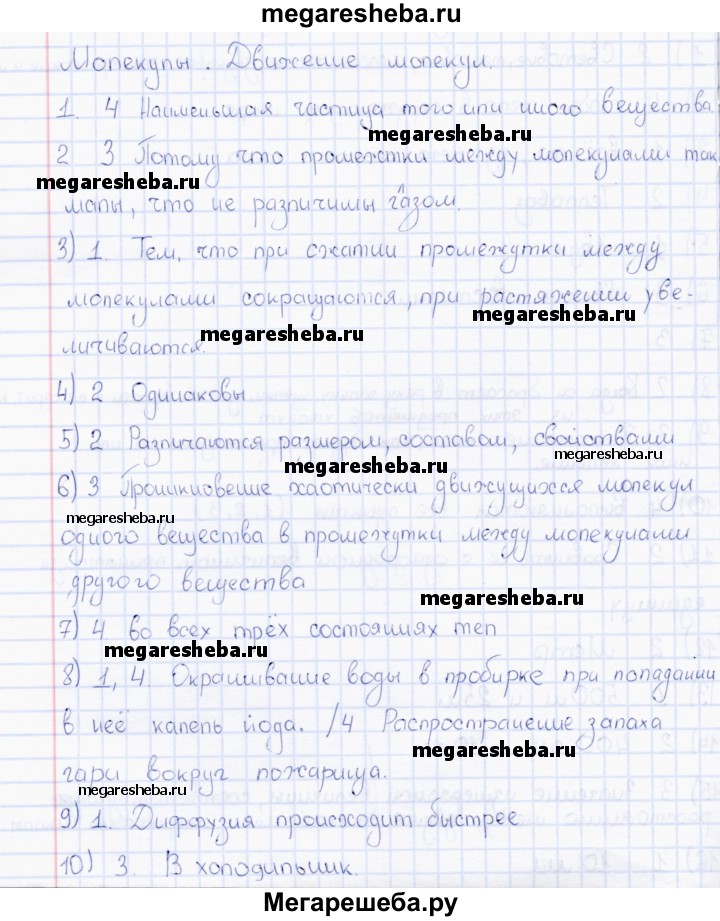 megaresheba.ru
Молекулы. Движение молекул.
1. 4 Наименьшая частица того или иного вещества
megaresheba.ru
2 3 Потому что промежутки между молекулами так
megaresheba.ru
малы, что не различимы глазом.
3) 1. Тем, что при сжатии промежутки между
молекулами сокращаются, при растяжении уве-
megaresheba.ru
личиваются.
megaresheba.ru
4) 2 Одинаковы
5) 2 Различаются размером, составом, свойствами
megaresheba.ru
megaresheba.ru
6) 3 Проникновение хаотически движущихся молекул
megaresheba.ru
одного вещества в промежутки между молекулами
другого вещества
megaresheba.ru
7) 4 во всех трёх состояниях тел
megaresheba.ru
8) 1, 4. Окрашивание воды в пробирке при попадании
в неё капель йода. /4 Распространение запаха
megaresheba.ru
гари вокруг пожарища.
megaresheba.ru
9) 1. Диффузия происходит быстрее
10) 3. В холодильник.
Мегарешеба.ру